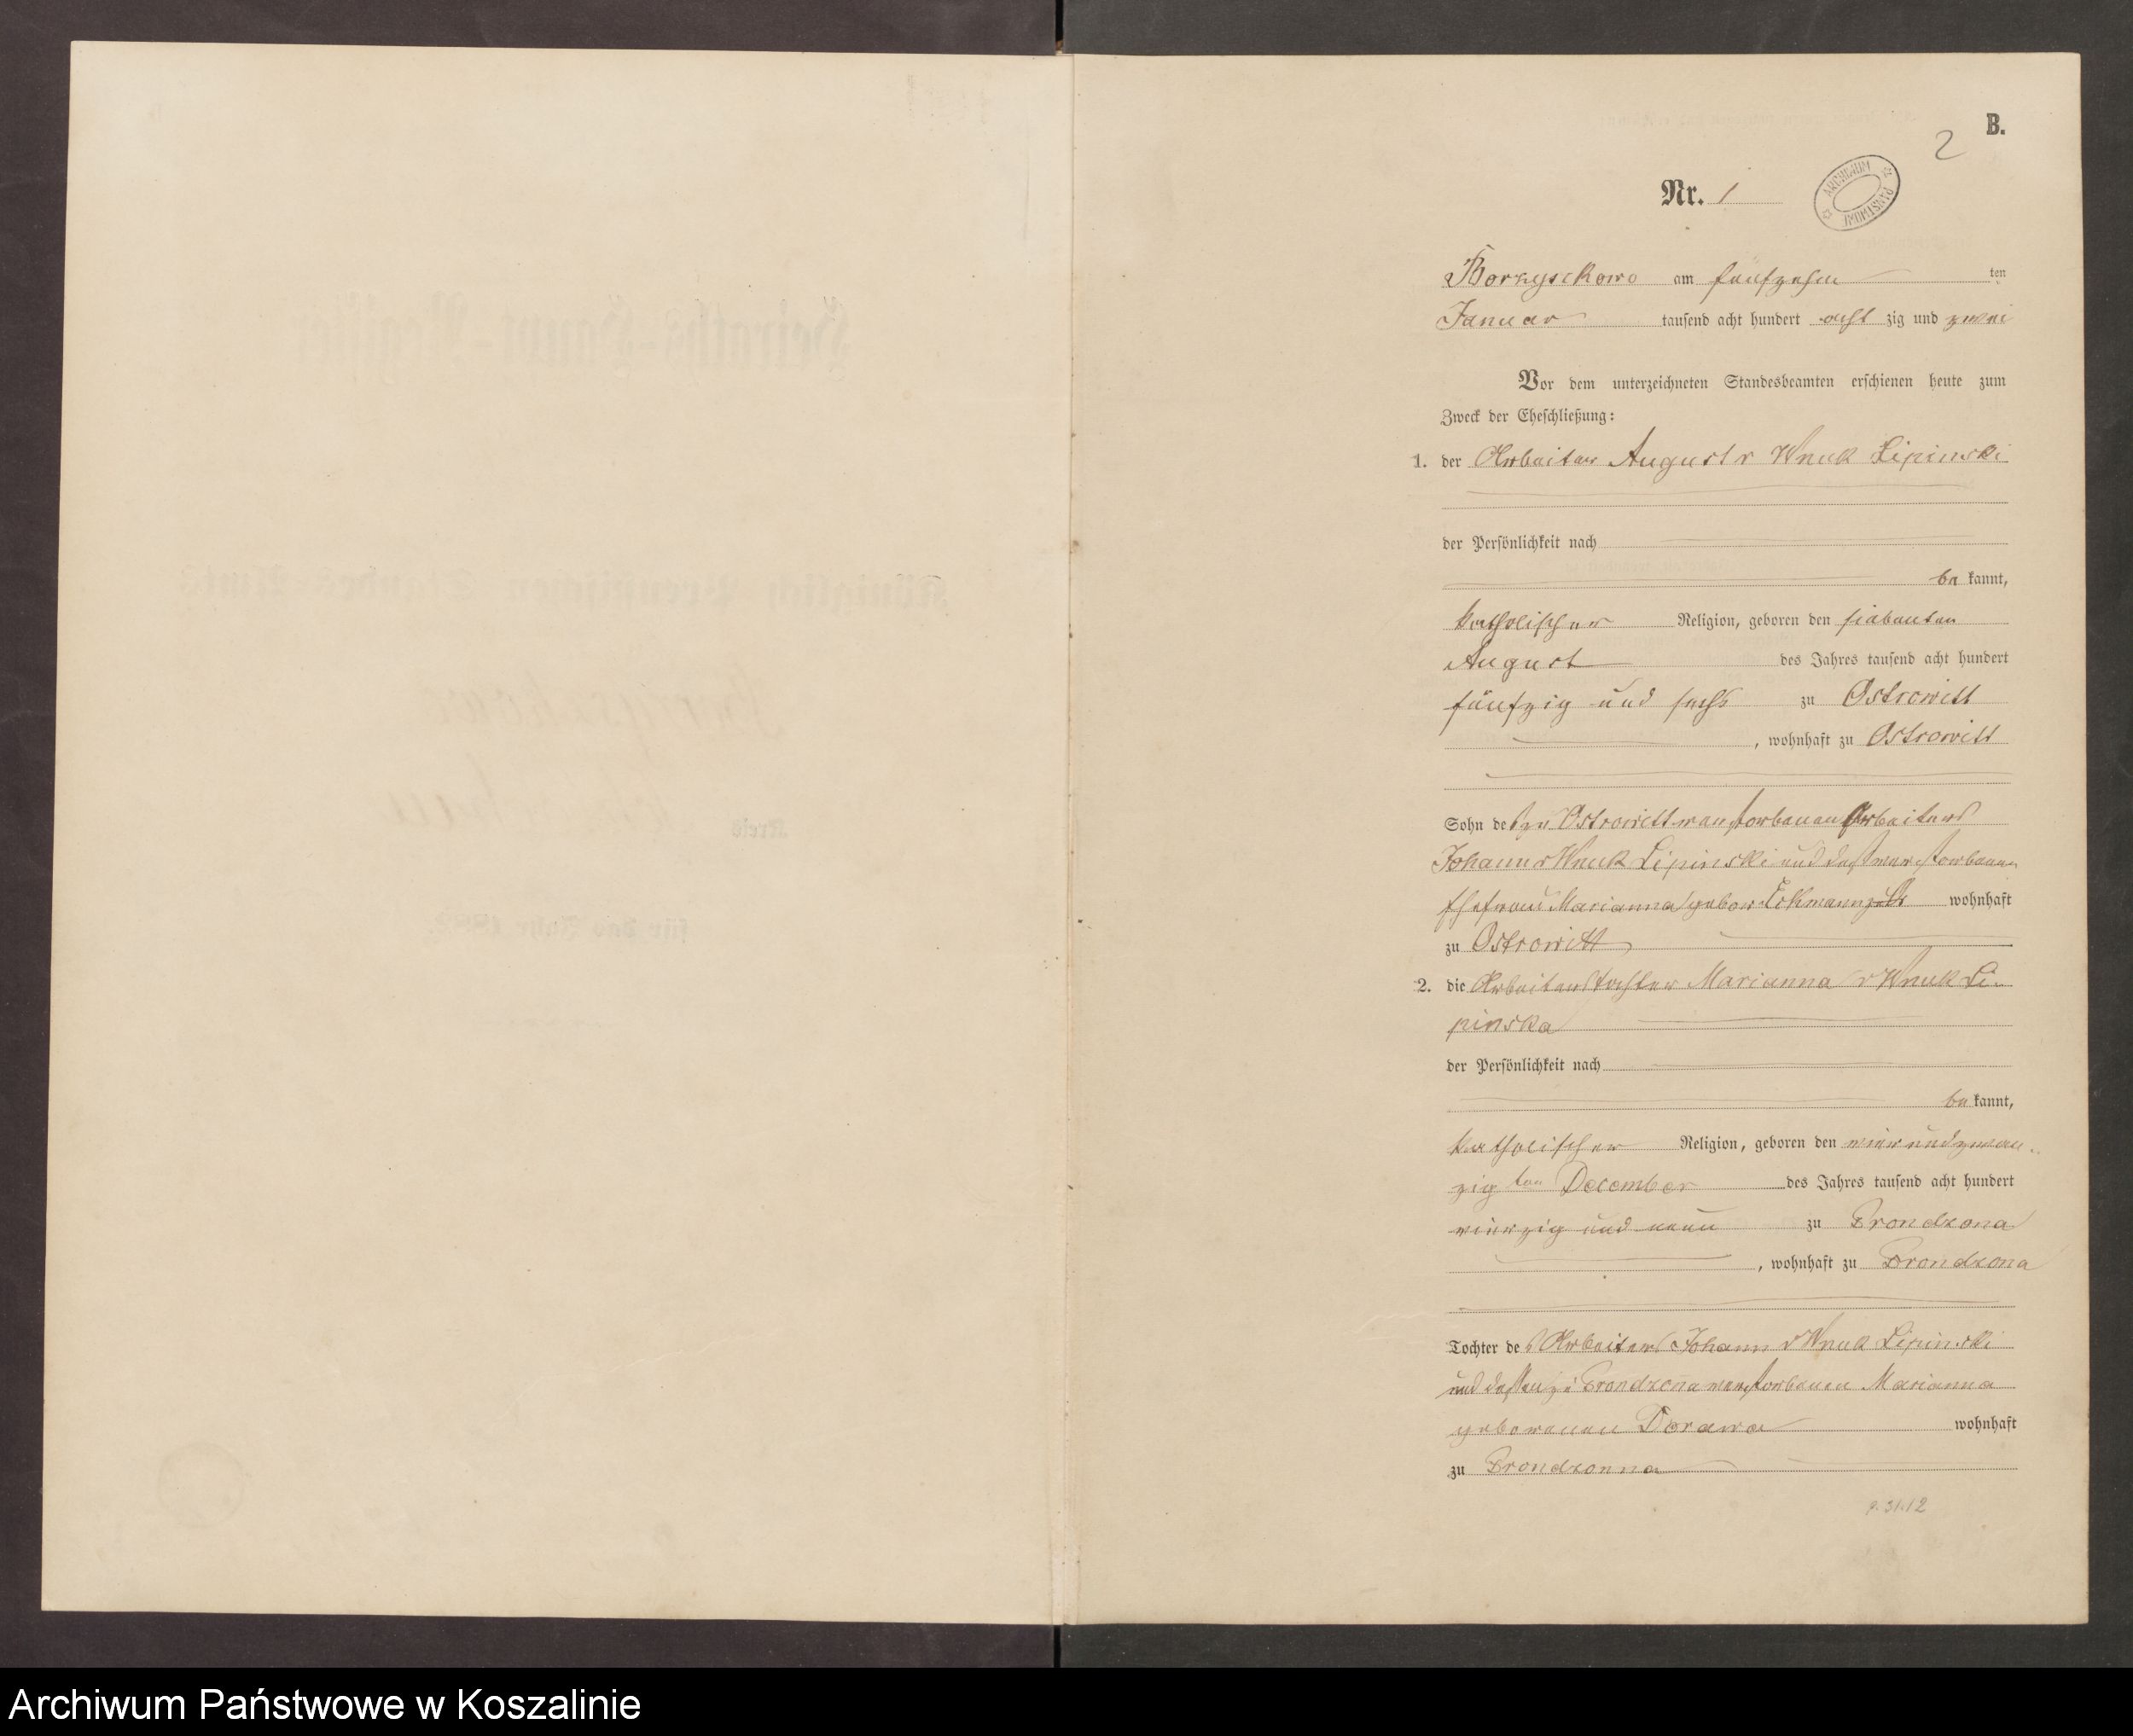 B.
2
Nr. 1
ARCHIWUM PAŃSTWOWE
Borzyskowo am fünfzehn ten
Januar tausend acht hundert acht zig und zwei
Vor dem unterzeichneten Standesbeamten erschienen heute zum
Zweck der Eheschließung:
1. der Arbeiter August v Wnuk Lipinski
der Persönlichkeit nach
be kannt,
katholischer Religion, geboren den siebenten
August des Jahres tausend acht hundert
fünfzig und sechs zu Ostrowitt
, wohnhaft zu Ostrowitt
Sohn des zu Ostrowitt verstorbenen Arbeiters
Johann v Wnuk Lipinski und deß verstorbenen
Ehefrau Marianna gebor. wohnhaft
zu Ostrowitt
2. die Arbeitertochter Marianna v Wnuk Li-
pinska
der Persönlichkeit nach
be kannt,
katholischer Religion, geboren den vierundzwan-
zig ten December des Jahres tausend acht hundert
vierzig und neun zu Prondzona
, wohnhaft zu Prondzona
Tochter des Arbeiters Johann v Wnuk Lipinski
und dessen zu Prondzona verstorbenen Marianna
geborenen Dorawa wohnhaft
zu Prondzonna
Heiraths-Haupt-Register
Königlich Preußischen Standes-Amts
Borzyskowo
Kreis
für das Jahr 1882.
Archiwum Państwowe w Koszalinie